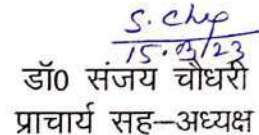 S. Chp
15.03/23
डॉ0 संजय चौधरी
प्राचार्य सह–अध्यक्ष